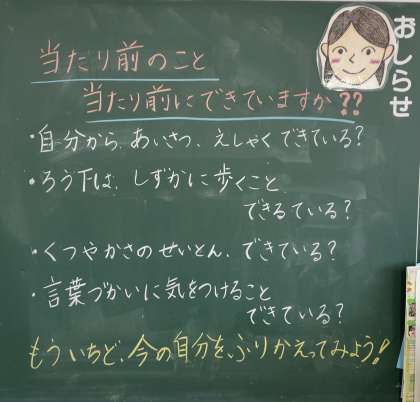 おしらせ
当たり前のこと
当たり前にできていますか??
・自分から、あいさつ、えしゃくできている?
・ろう下は、しずかに歩くこと
できるている?
・くつやかさのせいとん、できている?
・言葉づかいに気をつけること
できている?
もういちど、今の自分を、ふりかえってみよう!